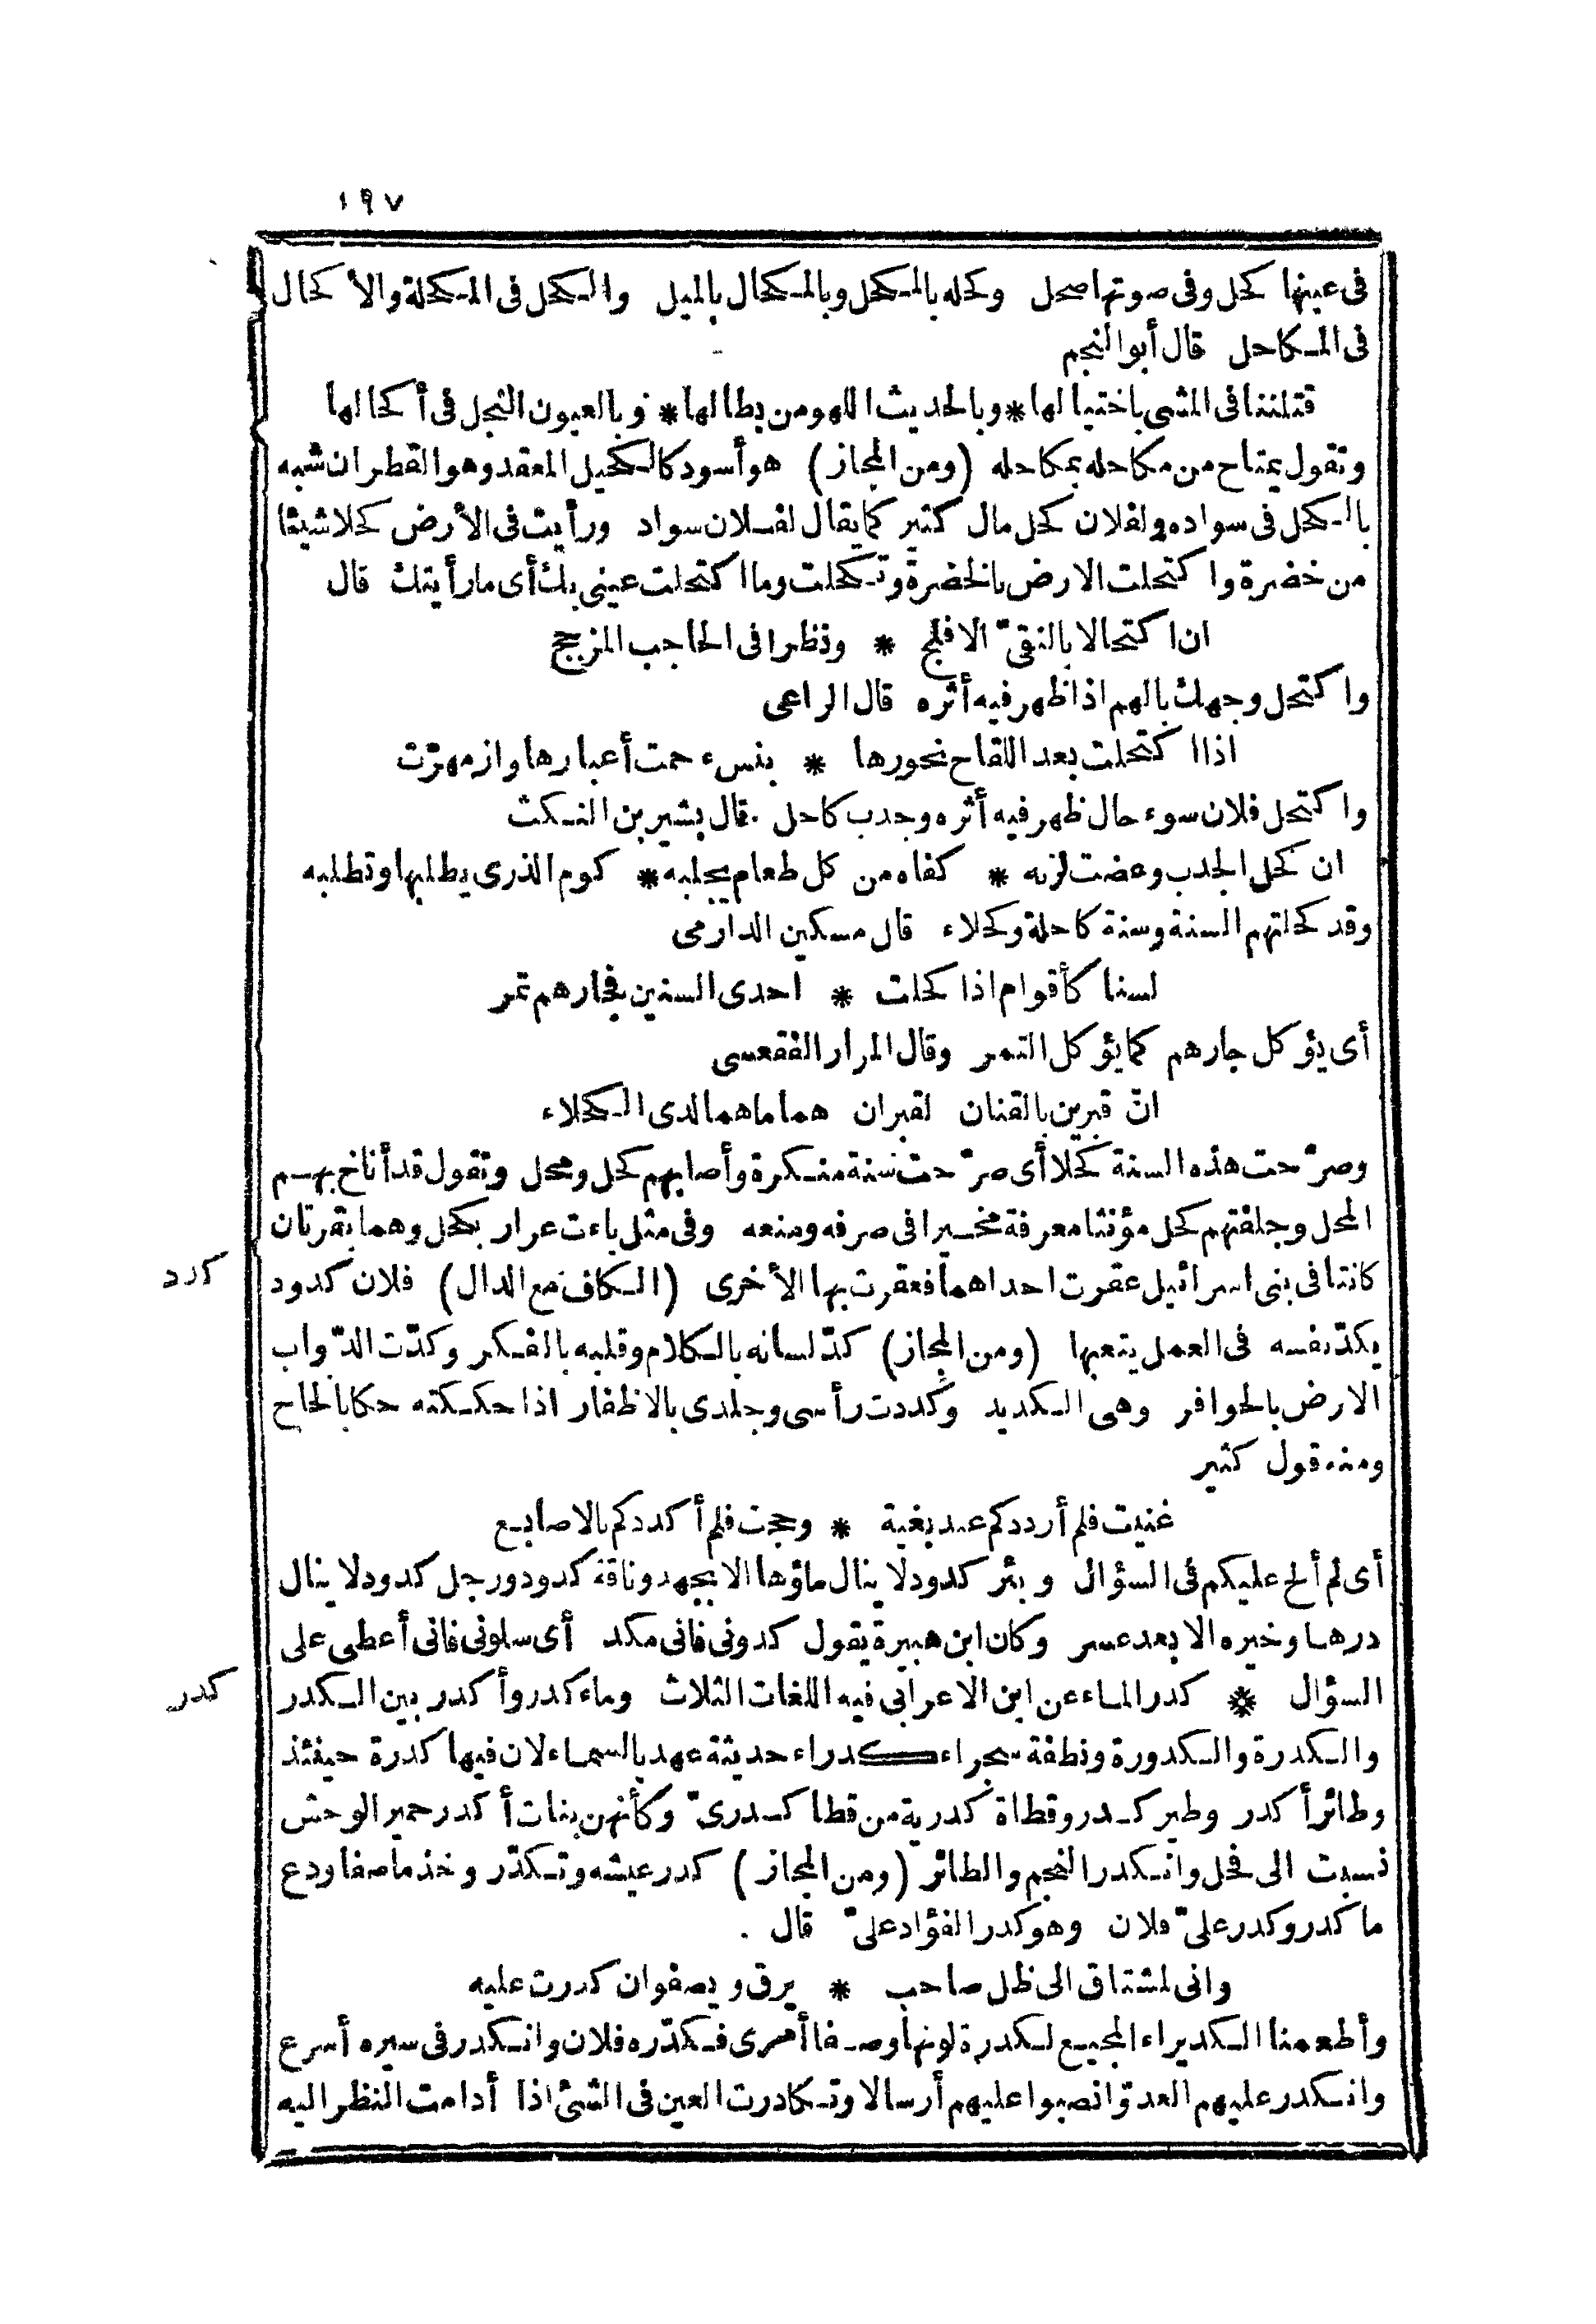 ١٩٧
فى عينها كحل وفى صوتها صحل وكحله بالمكحل وبالمكحال بالميل والكحل فى المكحلة والأ كحال
فى المكاحل قال أبو النجم
قتلننا فى المشى باختيالها * وبالحديث اللهو من بطالها * وبالعيون النجل فى أكحالها
وتقول يمتاح من مكاحله بمكاحله (ومن المجاز) هو أسود كالكحيل المعقد وهو القطران شبه
بالكحل فى سواده ولفلان كحل مال كثير كما يقال لفلان سواد ورأيت فى الأرض كحلا شيئا
من خضرة واكتحلت الارض بالخضرة وتكحلت وما اكتحلت عينى بك أى ما رأيتك قال
ان اكتحالا بالنقىّ الافلج * ونظرا فى الحاجب المزجج
واكتحل وجهك بالهم اذا ظهر فيه أثره قال الراعى
اذا اكتحلت بعد اللقاح نحورها * بنسء حمت أغبارها وازمهرّت
واكتحل فلان سوء حال ظهر فيه أثره وجدب كاحل قال بشير بن النكث
ان كحل الجدب وعضت لزبه * كفاه من كل طعام يجلبه * كوم الذرى يطلبها وتطلبه
وقد كحلتهم السنة وسنة كاحلة وكحلاء قال مسكين الدارمى
لسنا كأقوام اذا كحلت * احدى السنين فجارهم تمر
أى يؤكل جارهم كما يؤكل التمر وقال المرار الفقعسى
انّ قبرين بالقنان لقبران هما ما هما لدى الكحلاء
وصرّحت هذه السنة كحلا أى صرّحت سنة منكرة وأصابهم كحل ومحل وتقول قد أناخ بهم
المحل وجلفتهم كحل مؤنثا معرفة مخيرا فى صرفه ومنعه وفى مثل باءت عرار بكحل وهما بقرتان
كانتا فى بنى اسرائيل عقرت احداهما فعقرت بها الأخرى (الكاف مع الدال) فلان كدود
كدد
يكدّ نفسه فى العمل يتعبها (ومن المجاز) كدّ لسانه بالكلام وقلبه بالفكر وكدّت الدّواب
الارض بالحوافر وهى الكديد وكددت رأسى وجلدى بالاظفار اذا حككته حكا بالحاح
ومنه قول كثير
غنيت فلم أرددكم عند بغية * وحجت فلم أكددكم بالاصابع
أى لم ألح عليكم فى السؤال وبئر كدود لا ينال ماؤها الا بجهد وناقة كدود ورجل كدود لا ينال
درهما وخيره الا بعد عسر وكان ابن هبيرة يقول كدونى فانى مكد أى سلونى فانى أعطى على
السؤال * كدر الماء عن ابن الاعرابى فيه اللغات الثلاث وماء كدر وأكدر بين الكدر
كدر
والكدرة والكدورة ونطفة سجراء كدراء حديثة عهد بالسماء لان فيها كدرة حينئذ
وطائر أكدر وطير كدر وقطاة كدرية من قطا كدرىّ وكأنهن بنات أكدر حمير الوحش
نسبت الى فحل وانكدر النجم والطائر (ومن المجاز) كدر عيشه وتكدّر وخذ ما صفا ودع
ما كدر وكدر علىّ فلان وهو كدر الفؤاد علىّ قال
وانى لمشتاق الى ظل صاحب * يرق ويصفو ان كدرت عليه
وأطعمنا الكديراء المجيع لكدرة لونها وصفا أمرى فكدّره فلان وانكدر فى سيره أسرع
وانكدر عليهم العدوّ انصبوا عليهم أرسالا وتكادرت العين فى الشئ اذا أدامت النظر اليه